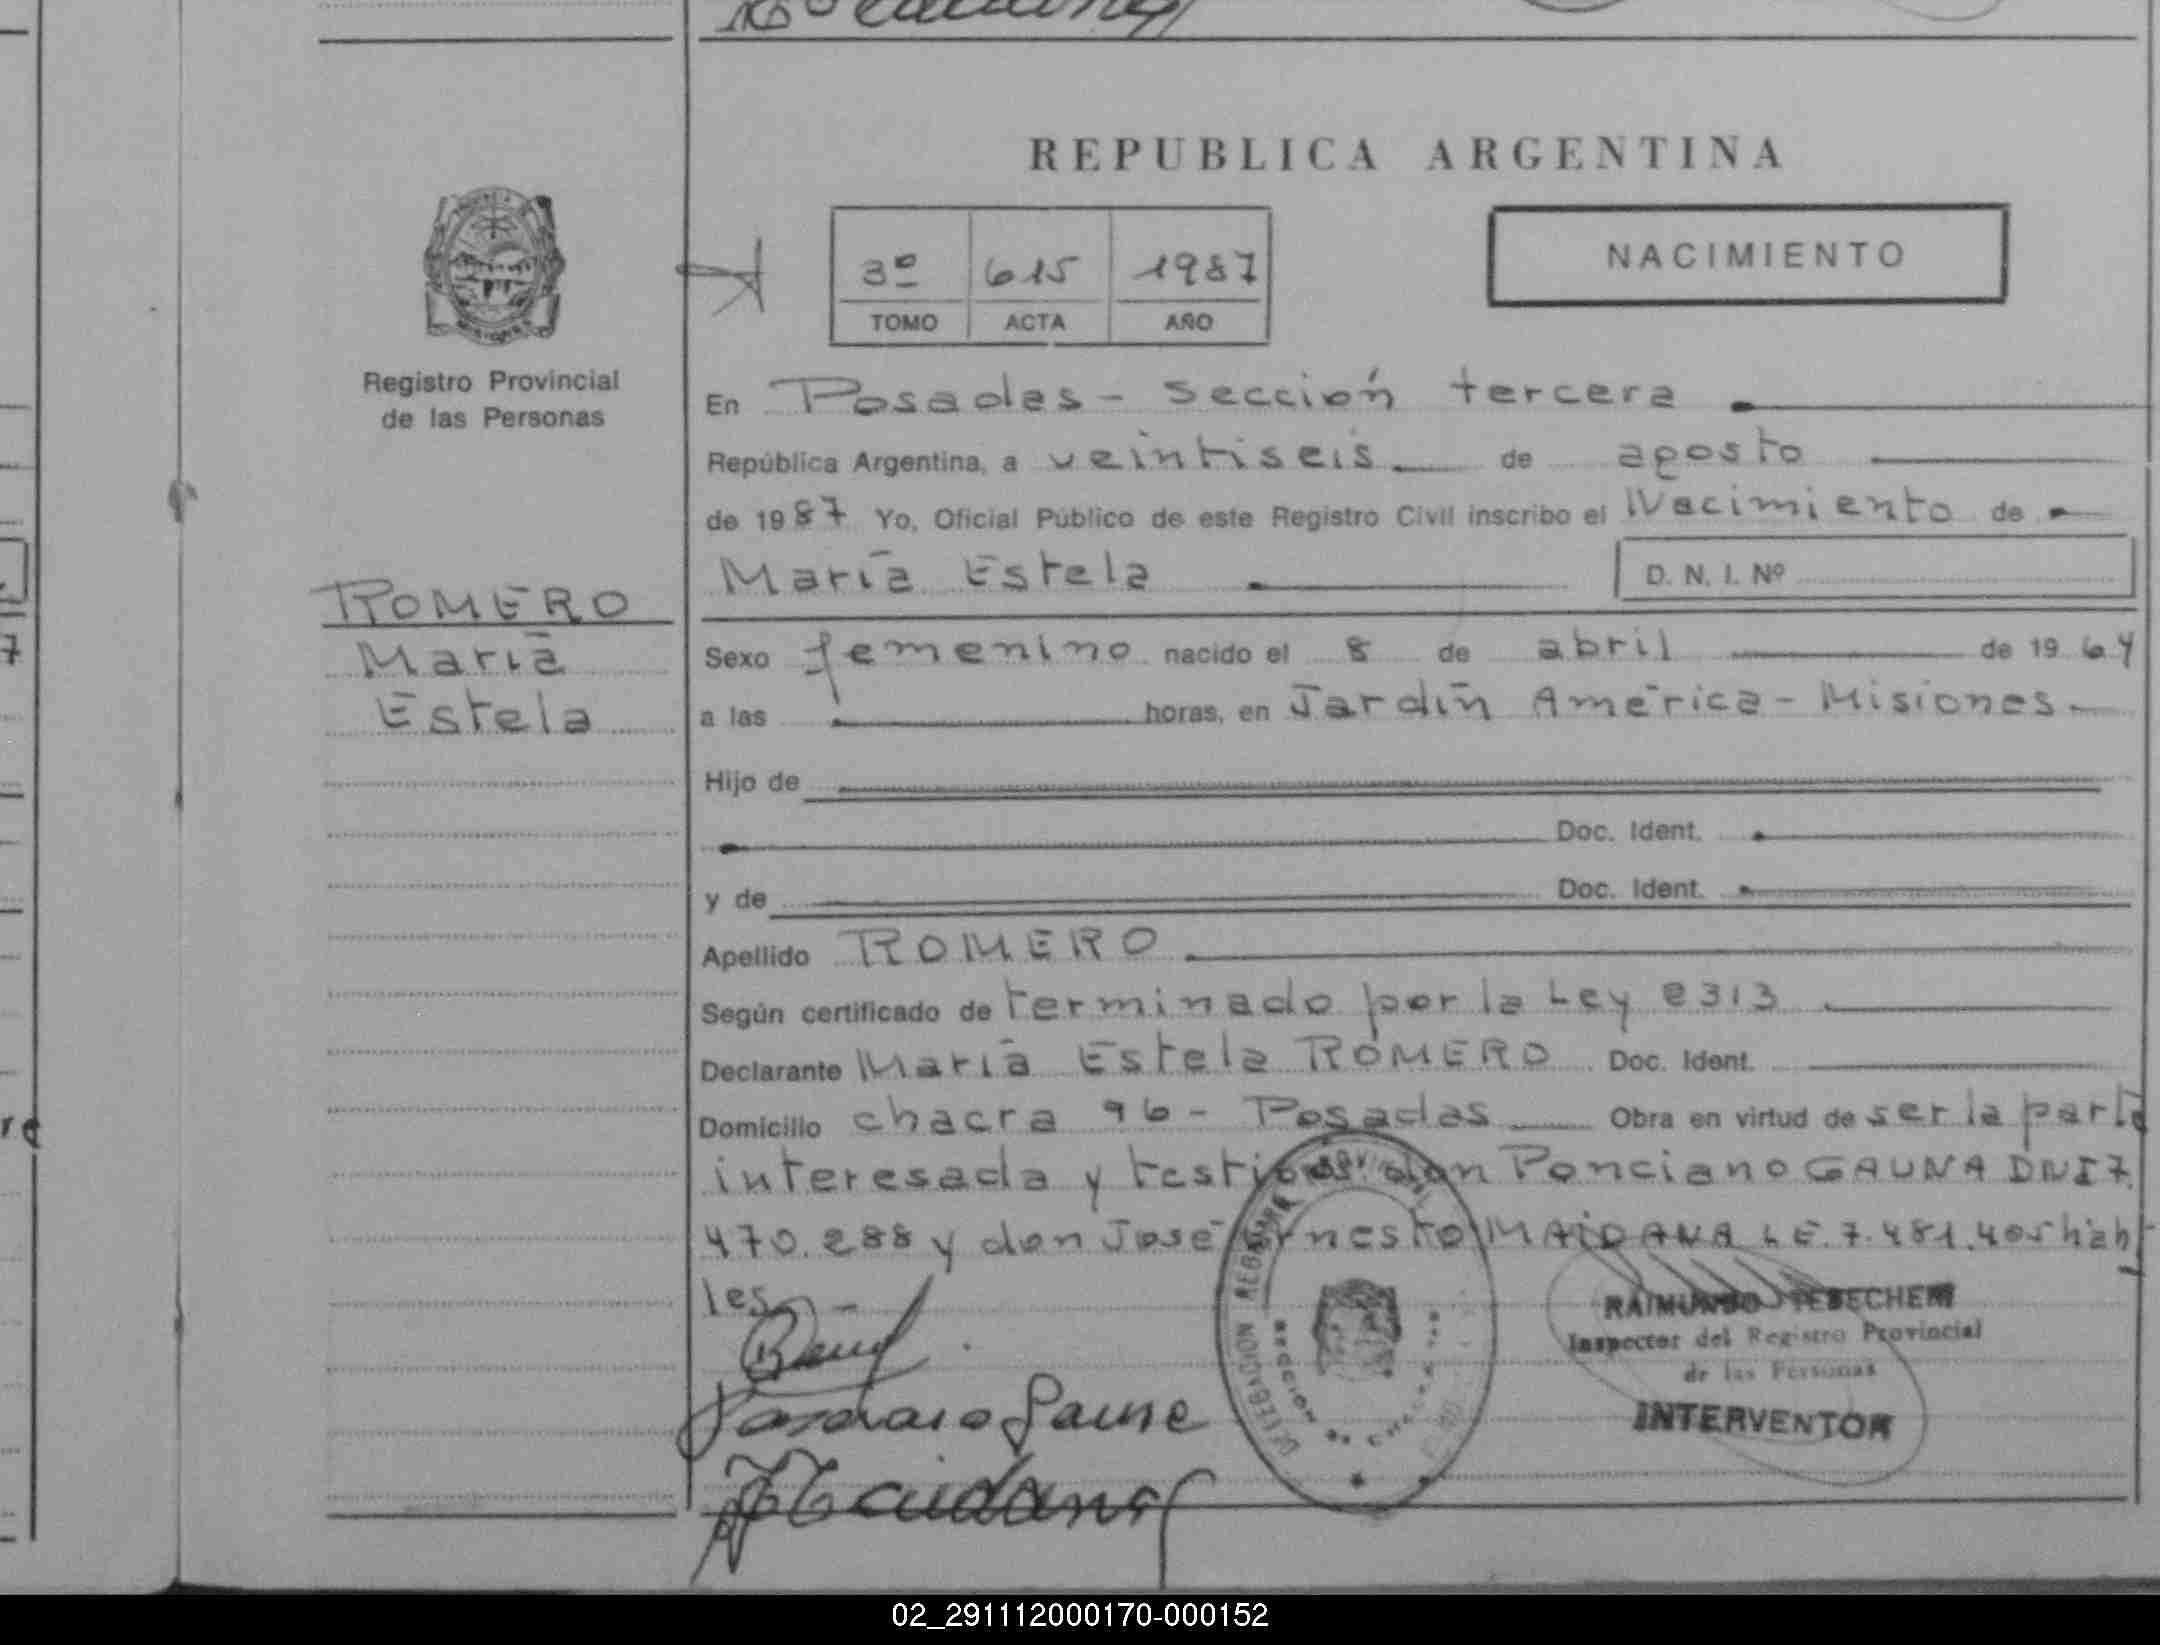 REPUBLICA ARGENTINA
NACIMIENTO
3º 615 1987
TOMO ACTA AÑO
Registro Provincial
de las Personas
ROMERO
María
Estela
En Posadas - sección tercera
República Argentina, a veintiseis de agosto
de 1987 Yo, Oficial Público de este Registro Civil inscribo el Nacimiento de
María Estela D. N. I. Nº
Sexo femenino nacido el 8 de abril de 1964
a las horas, en Jardín América - Misiones.
Hijo de
Doc. Ident.
y de Doc. Ident.
Apellido ROMERO
Según certificado de terminado por la Ley 2313
Declarante María Estela ROMERO Doc. Ident.
Domicilio chacra 96 - Posadas Obra en virtud de ser la parte
interesada y testigos don Ponciano GAUNA DNI 7.
470.288 y don José Ernesto MAIDANA L E. 7.481.405 hábi
les.
RAIMUNDO TEBECHERI
Inspector del Registro Provincial
de las Personas
INTERVENTOR
Ponciano Gauna
Maidana
02_291112000170-000152